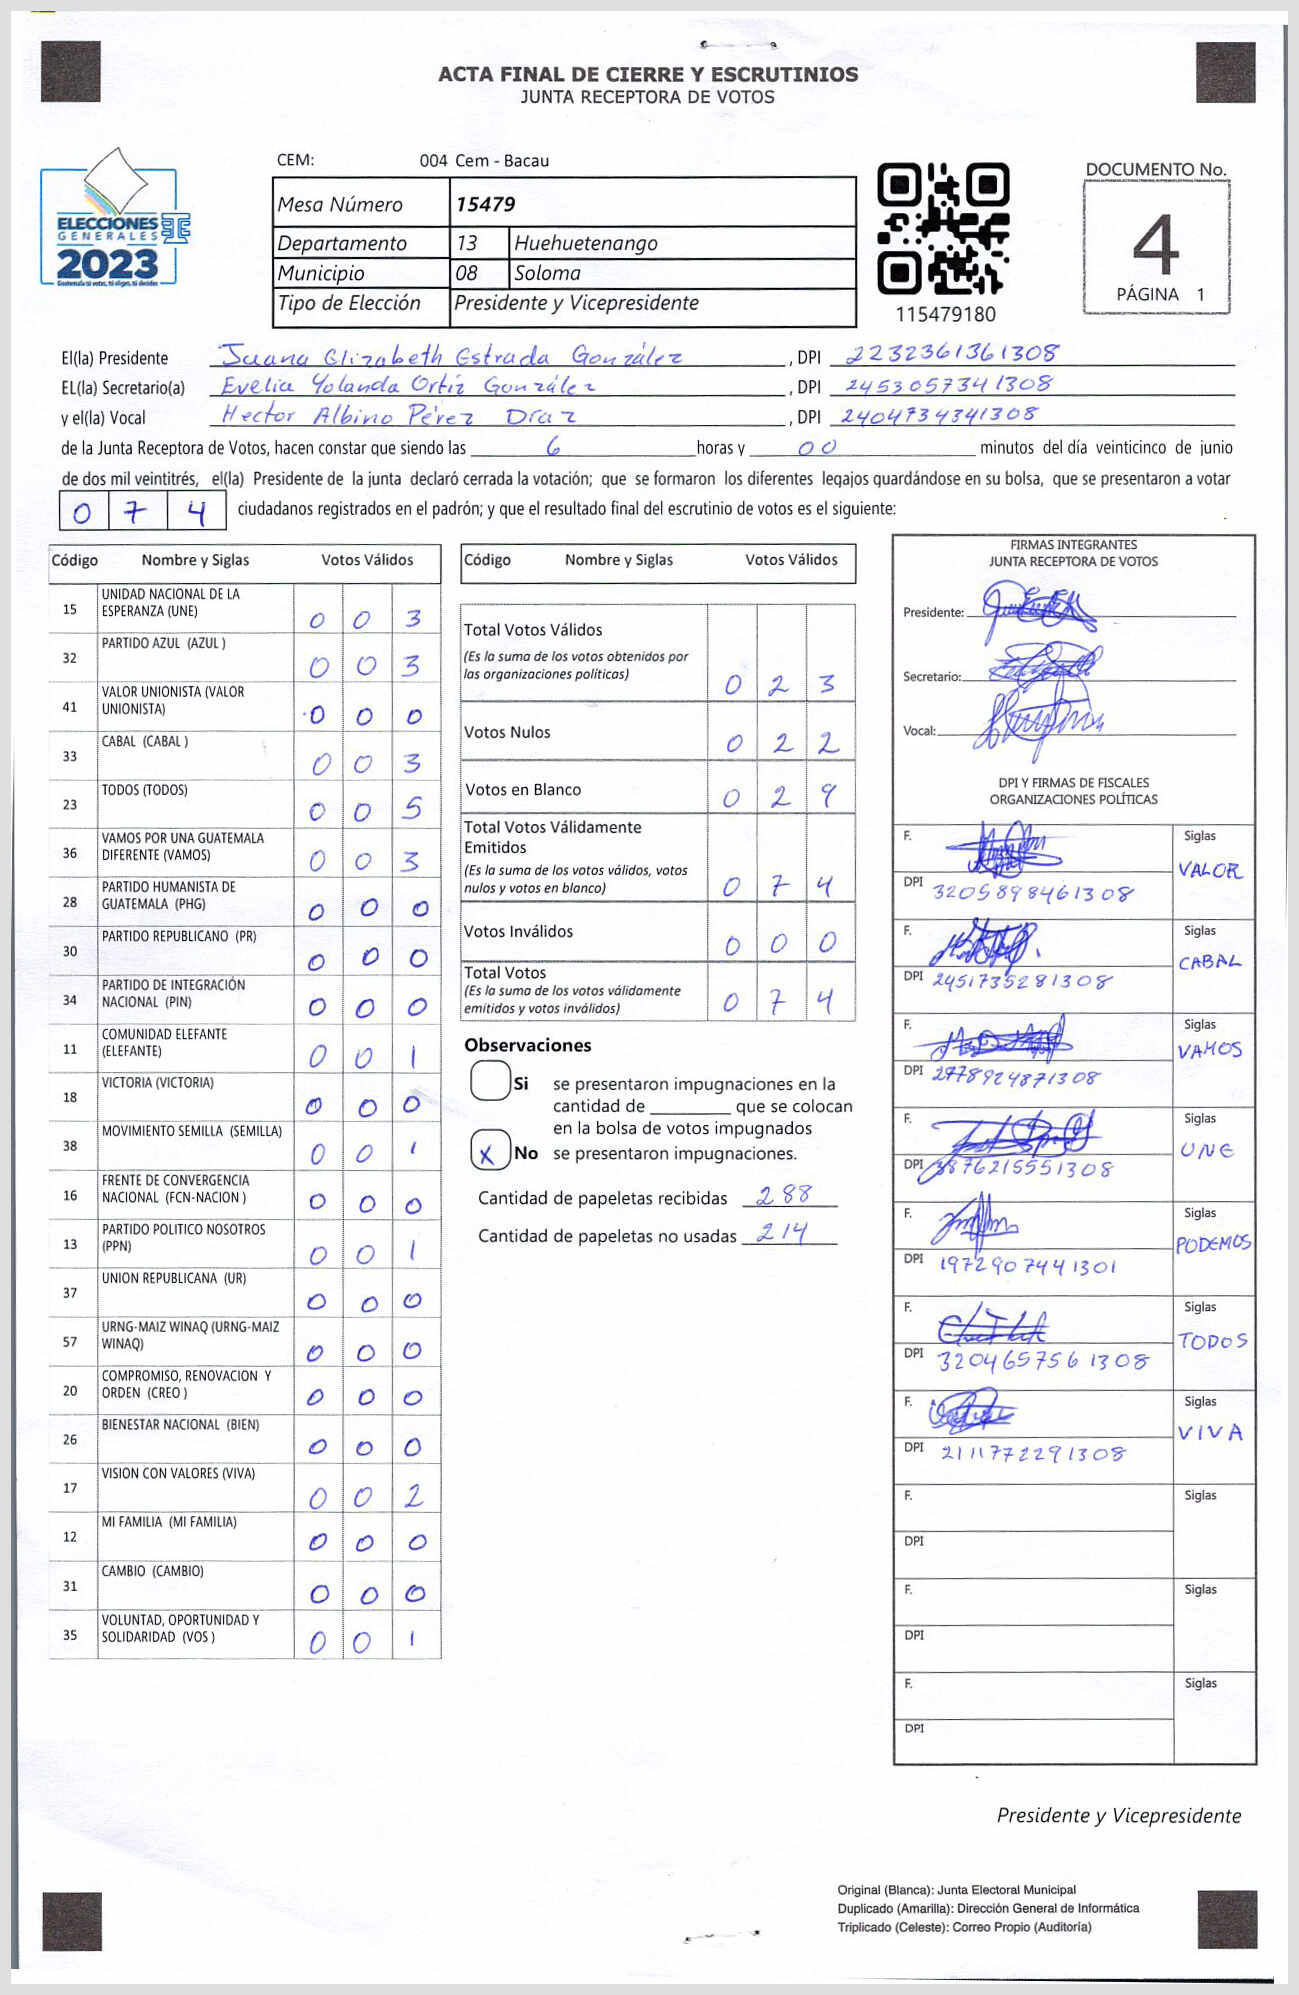 ACTA FINAL DE CIERRE Y ESCRUTINIOS
JUNTA RECEPTORA DE VOTOS
CEM: 004 Cem - Bacau
ELECCIONES
GENERALES
2023
Guatemala tú votas, tú eliges, tú decides
Mesa Número 15479
Departamento 13 Huehuetenango
Municipio 08 Soloma
Tipo de Elección Presidente y Vicepresidente
115479180
DOCUMENTO No.
4
PÁGINA 1
El(la) Presidente Juana Elizabeth Estrada González , DPI 2232361361308
EL(la) Secretario(a) Evelia Yolanda Ortíz González , DPI 2453057341308
y el(la) Vocal Hector Albino Pérez Díaz , DPI 2404734341308
de la Junta Receptora de Votos, hacen constar que siendo las 6 horas y 00 minutos del día veinticinco de junio
de dos mil veintitrés, el(la) Presidente de la junta declaró cerrada la votación; que se formaron los diferentes legajos guardándose en su bolsa, que se presentaron a votar
0 7 4 ciudadanos registrados en el padrón; y que el resultado final del escrutinio de votos es el siguiente:
Código Nombre y Siglas Votos Válidos
15 UNIDAD NACIONAL DE LA
ESPERANZA (UNE) 0 0 3
32 PARTIDO AZUL (AZUL ) 0 0 3
41 VALOR UNIONISTA (VALOR
UNIONISTA) 0 0 0
33 CABAL (CABAL ) 0 0 3
23 TODOS (TODOS) 0 0 5
36 VAMOS POR UNA GUATEMALA
DIFERENTE (VAMOS) 0 0 3
28 PARTIDO HUMANISTA DE
GUATEMALA (PHG) 0 0 0
30 PARTIDO REPUBLICANO (PR) 0 0 0
34 PARTIDO DE INTEGRACIÓN
NACIONAL (PIN) 0 0 0
11 COMUNIDAD ELEFANTE
(ELEFANTE) 0 0 1
18 VICTORIA (VICTORIA) 0 0 0
38 MOVIMIENTO SEMILLA (SEMILLA) 0 0 1
16 FRENTE DE CONVERGENCIA
NACIONAL (FCN-NACION ) 0 0 0
13 PARTIDO POLITICO NOSOTROS
(PPN) 0 0 1
37 UNION REPUBLICANA (UR) 0 0 0
57 URNG-MAIZ WINAQ (URNG-MAIZ
WINAQ) 0 0 0
20 COMPROMISO, RENOVACION Y
ORDEN (CREO ) 0 0 0
26 BIENESTAR NACIONAL (BIEN) 0 0 0
17 VISION CON VALORES (VIVA) 0 0 2
12 MI FAMILIA (MI FAMILIA) 0 0 0
31 CAMBIO (CAMBIO) 0 0 0
35 VOLUNTAD, OPORTUNIDAD Y
SOLIDARIDAD (VOS ) 0 0 1
Código Nombre y Siglas Votos Válidos
Total Votos Válidos
(Es la suma de los votos obtenidos por
las organizaciones políticas) 0 2 3
Votos Nulos 0 2 2
Votos en Blanco 0 2 9
Total Votos Válidamente
Emitidos
(Es la suma de los votos válidos, votos
nulos y votos en blanco) 0 7 4
Votos Inválidos 0 0 0
Total Votos
(Es la suma de los votos válidamente
emitidos y votos inválidos) 0 7 4
Observaciones
Si se presentaron impugnaciones en la
cantidad de ________ que se colocan
en la bolsa de votos impugnados
X No se presentaron impugnaciones.
Cantidad de papeletas recibidas 288
Cantidad de papeletas no usadas 214
FIRMAS INTEGRANTES
JUNTA RECEPTORA DE VOTOS
Presidente:
Secretario:
Vocal:
DPI Y FIRMAS DE FISCALES
ORGANIZACIONES POLÍTICAS
F. Siglas
VALOR
DPI 3205898461308
F. Siglas
CABAL
DPI 2451735281308
F. Siglas
VAMOS
DPI 2778924871308
F. Siglas
UNE
DPI 3876215551308
F. Siglas
PODEMOS
DPI 1972907441301
F. Siglas
TODOS
DPI 3204657561308
F. Siglas
VIVA
DPI 2111772291308
F. Siglas
DPI
F. Siglas
DPI
F. Siglas
DPI
Presidente y Vicepresidente
Original (Blanca): Junta Electoral Municipal
Duplicado (Amarilla): Dirección General de Informática
Triplicado (Celeste): Correo Propio (Auditoría)